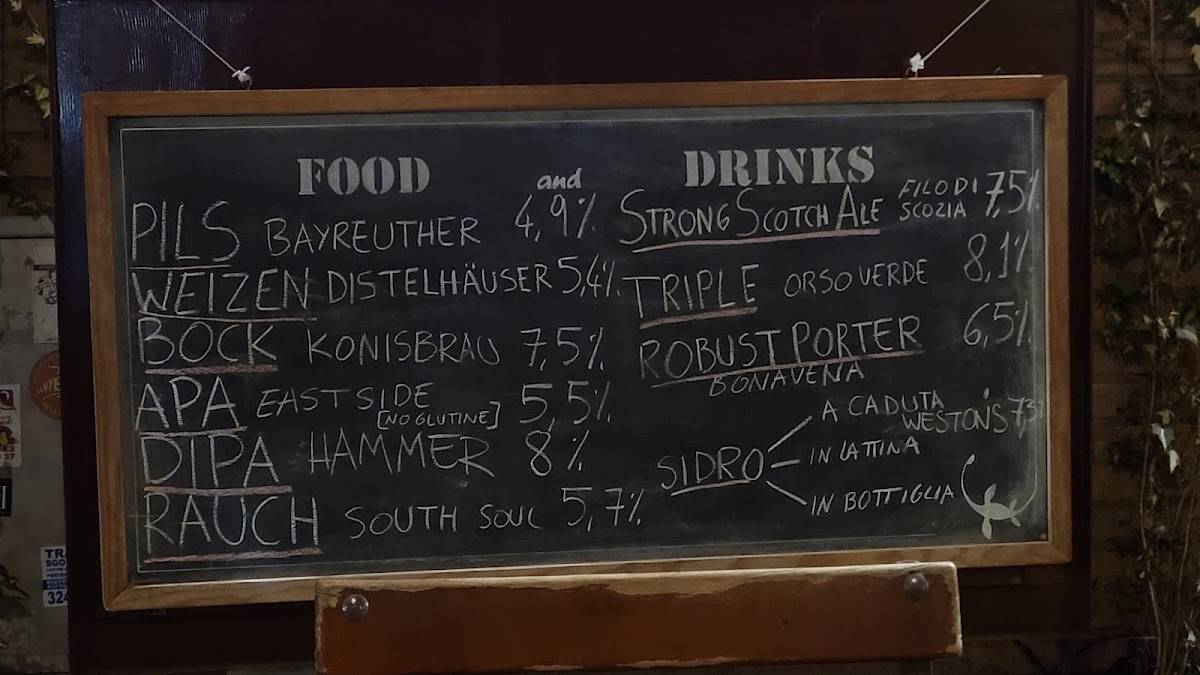 FOOD and DRINKS
PILS BAYREUTHER 4,9%
WEIZEN DISTELHÄUSER 5,4%
BOCK KONISBRAU 7,5%
APA EAST SIDE [NO GLUTINE] 5,5%
DIPA HAMMER 8%
RAUCH SOUTH SOUL 5,7%
STRONG SCOTCH ALE FILO DI SCOZIA 7,5%
TRIPLE ORSO VERDE 8,1%
ROBUST PORTER 6,5%
BONAVENA
SIDRO
A CADUTA
WESTON'S 7,3%
IN LATTINA
IN BOTTIGLIA
324